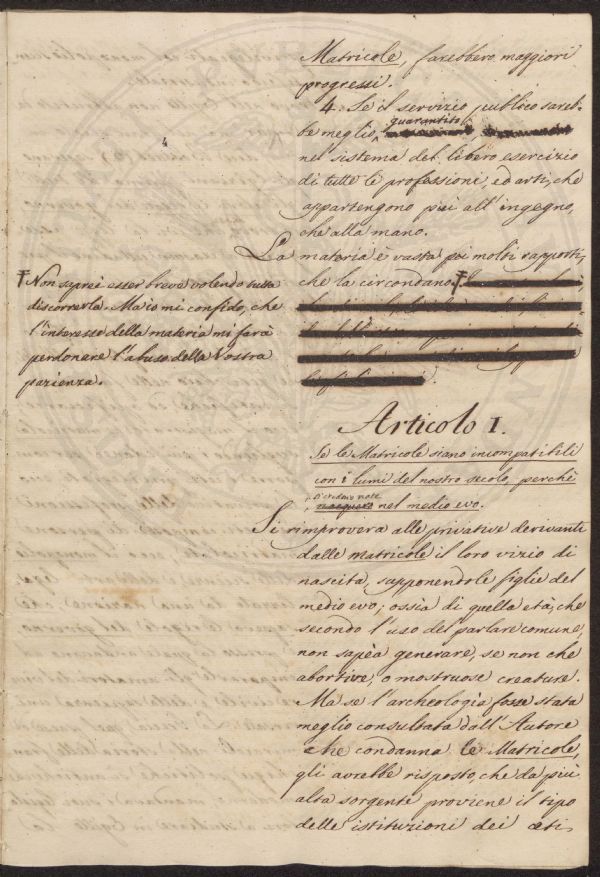 Matricole, farebbero maggiori
progressi.
4. Se il servizio publico sareb-
be meglio, guarantito
nel sistema del libero esercizio
di tutte le professioni, ed arti, che
appartengono più all'ingegno,
che alla mano.
La materia è vasta poi molti rapporti,
che la circondano.
Non saprei esser breve volendo tutta
discorrerla. Ma io mi confido, che
l'interesse della materia mi farà
perdonare l'abuso della Vostra
pazienza.
Articolo I.
Se le Matricole siano incompatibili
con i lumi del nostro secolo, perchè
si credano nate
nacquero nel medio evo.
Si rimprovera alle privative derivanti
dalle matricole il loro vizio di
nascita, supponendole figlie del
medio evo; ossia di quella età, che
secondo l'uso del parlare comune,
non sapèa generare, se non che
abortive, o mostruose creature.
Ma se l'archeologia fosse stata
meglio consultata dall'Autore
che condanna le Matricole,
gli avrebbe risposto, che da più
alta sorgente proviene il tipo
delle istituzioni dei ceti,